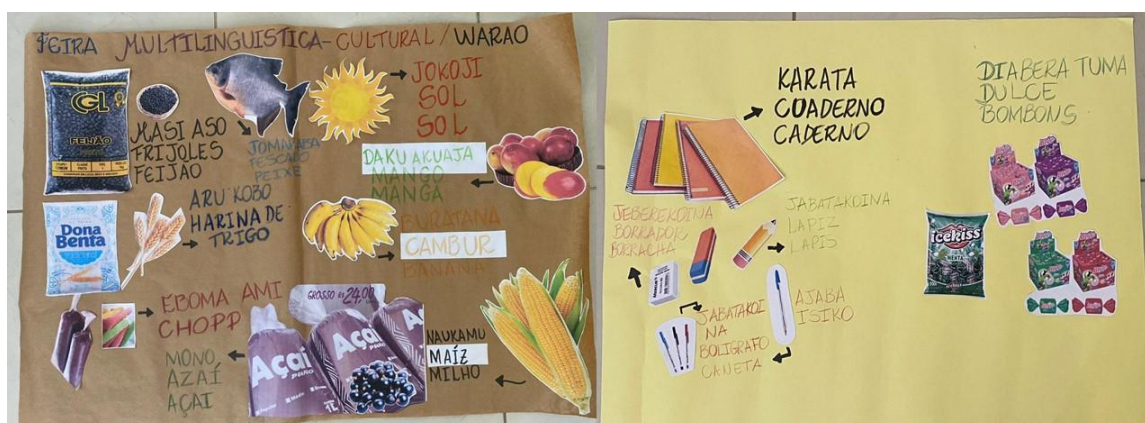 FEIRA MULTILINGUISTICA-CULTURAL/WARAO
CGL
FEIJÃO
MASI ASO
FRIJOLES
FEIJAO
JOMAKABA
PESCADO
PEIXE
JOKOJI
SOL
SOL
DAKU AKUAJA
MANGO
MANGA
Dona
Benta
ARU KOBO
HARINA DE
TRIGO
CAMBUR
BANANA
EBOMA AMI
CHOPP
MONO,
AZAÍ
AÇAI
GROSSO R$24,00
Açaí
Açaí
NAUKAMU
MAÍZ
MILHO
KARATA
CUADERNO
CADERNO
DIABERA TUMA
DULCE
BOMBONS
JEBEREKOINA
BORRADOR
BORRACHA
JABATAKOINA
LAPIZ
LAPIS
JABATAKOI
NA
BOLIGRAFO
CANETA
AJABA
ISIKO
Icekiss
MENTA